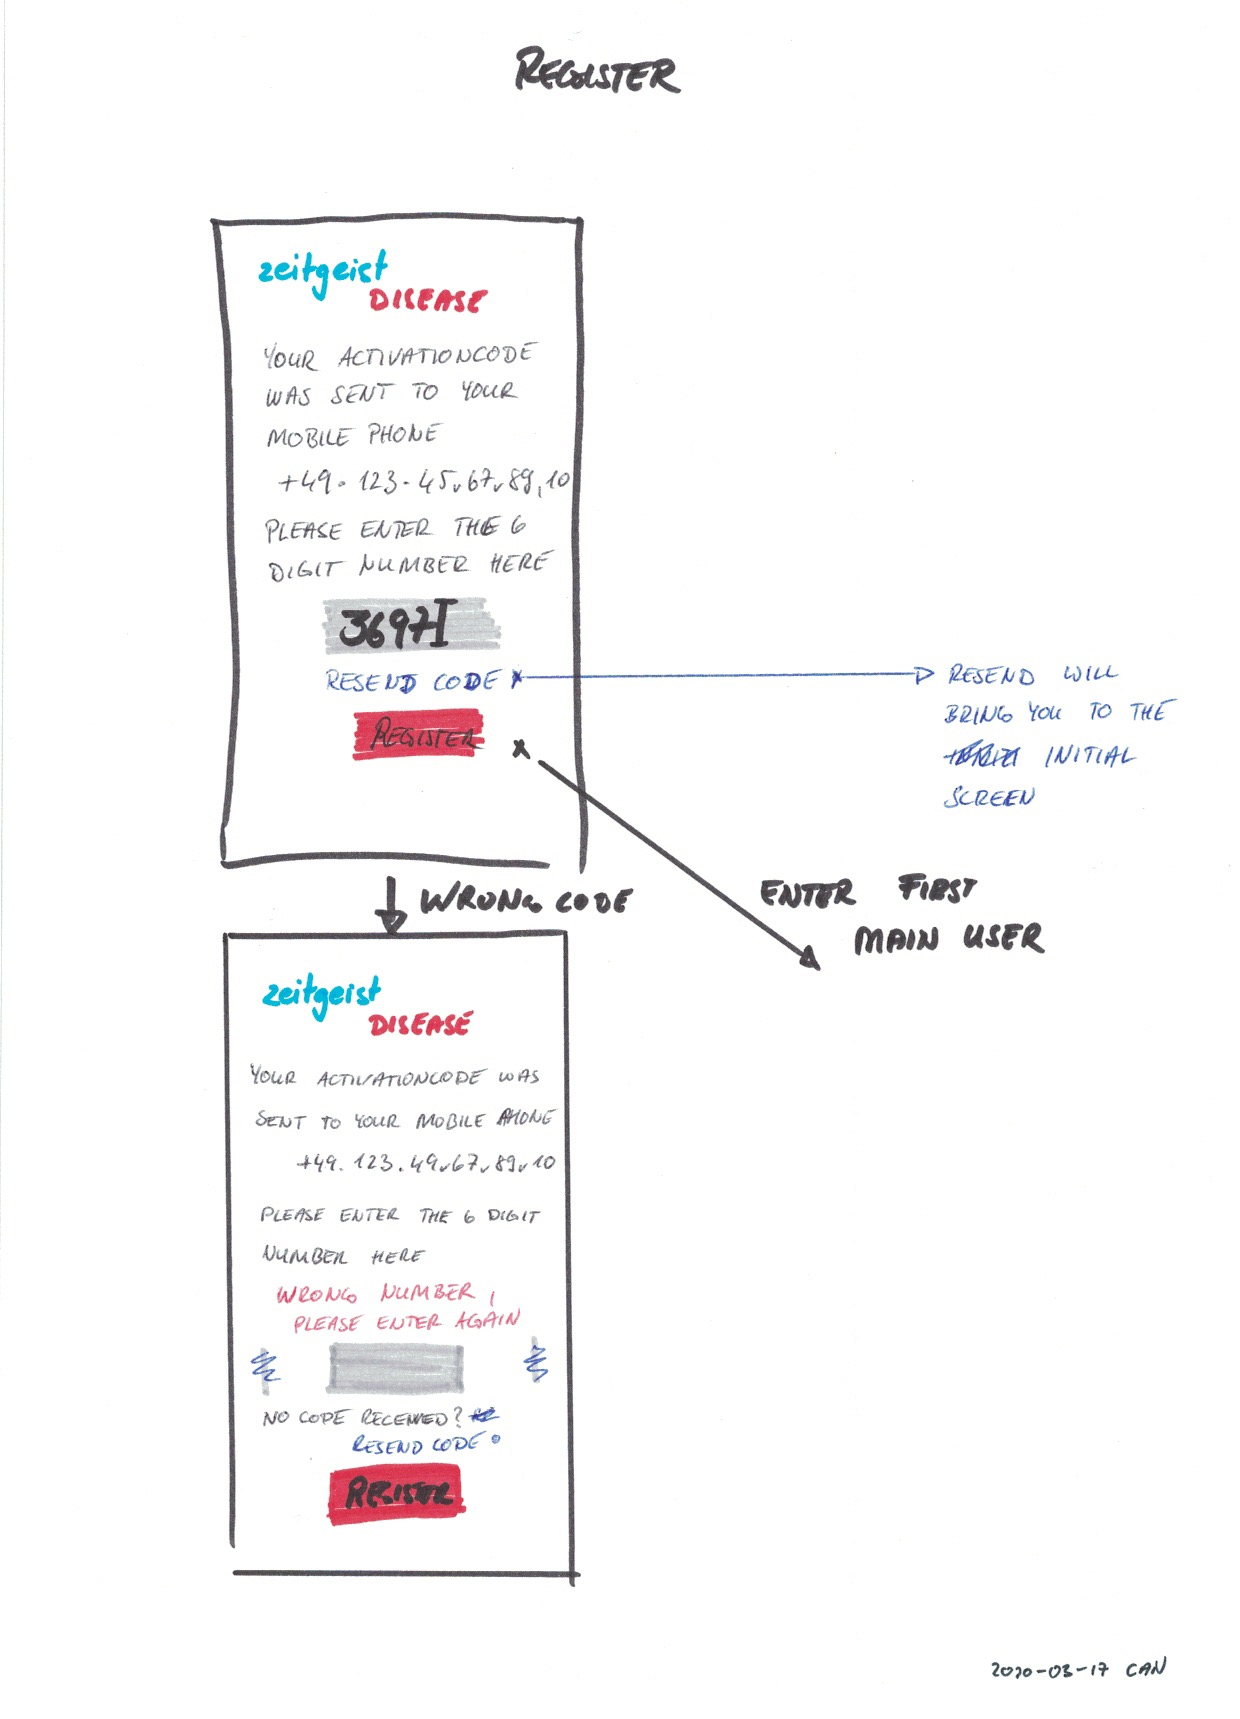 REGISTER
zeitgeist
DISEASE
YOUR ACTIVATIONCODE
WAS SENT TO YOUR
MOBILE PHONE
+49. 123. 45.67.89.10
PLEASE ENTER THE 6
DIGIT NUMBER HERE
3697
RESEND CODE x
REGISTER x
RESEND WILL
BRING YOU TO THE
INITIAL
SCREEN
ENTER FIRST
MAIN USER
WRONG CODE
zeitgeist
DISEASE
YOUR ACTIVATIONCODE WAS
SENT TO YOUR MOBILE PHONE
+49. 123. 49.67.89.10
PLEASE ENTER THE 6 DIGIT
NUMBER HERE
WRONG NUMBER,
PLEASE ENTER AGAIN
NO CODE RECEIVED?
RESEND CODE
REGISTER
2020-03-17 CAN